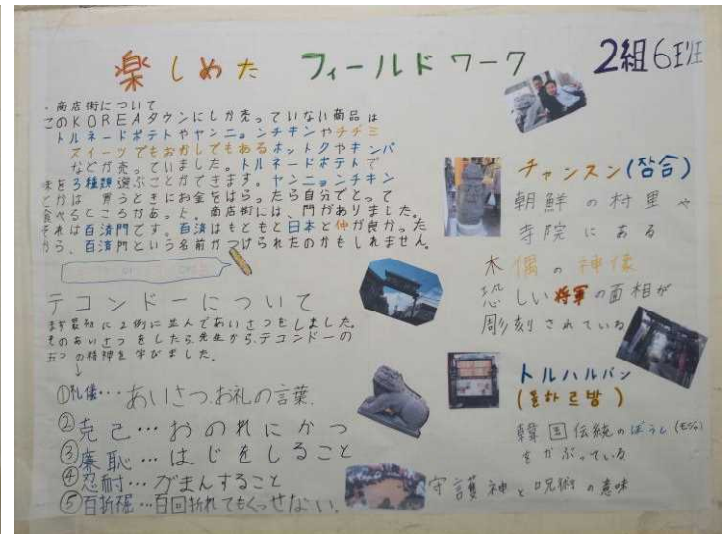 楽しめた フィールドワーク
2組6班
・商店街について
このKOREAタウンにしか売っていない商品は
トルネードポテトやヤンニョンチキンやチヂミ
スイーツでもおかしでもあるホットクやキンパ
などが売っていました。トルネードポテトで
味を3種類選ぶことができます。ヤンニョンチキン
とかは 買うときにお金をはらったら自分でとって
食べるところがあった。商店街には、門がありました。
それは百済門です。百済はもともと日本と仲が良かった
から、百済門という名前がつけられたのかもしれません。
テコンドーについて
まず最初に2例に並んであいさつをしました。
そのあいさつをしたら、先生から、テコンドーの
五つの精神を学びました。
↓
①礼儀…あいさつ、お礼の言葉、
②克己…おのれにかつ
③廉恥…はじをしること
④忍耐…がまんすること
⑤百折不屈…百回折れてもくっせない、
チャンスン(장승)
朝鮮の村里や
寺院にある
木偶の神像
恐しい将軍の面相が
彫刻されている
トルハルバン
(돌하르방)
韓国伝統のぼうし(モジャ)
をかぶっている
守護神と呪術の意味